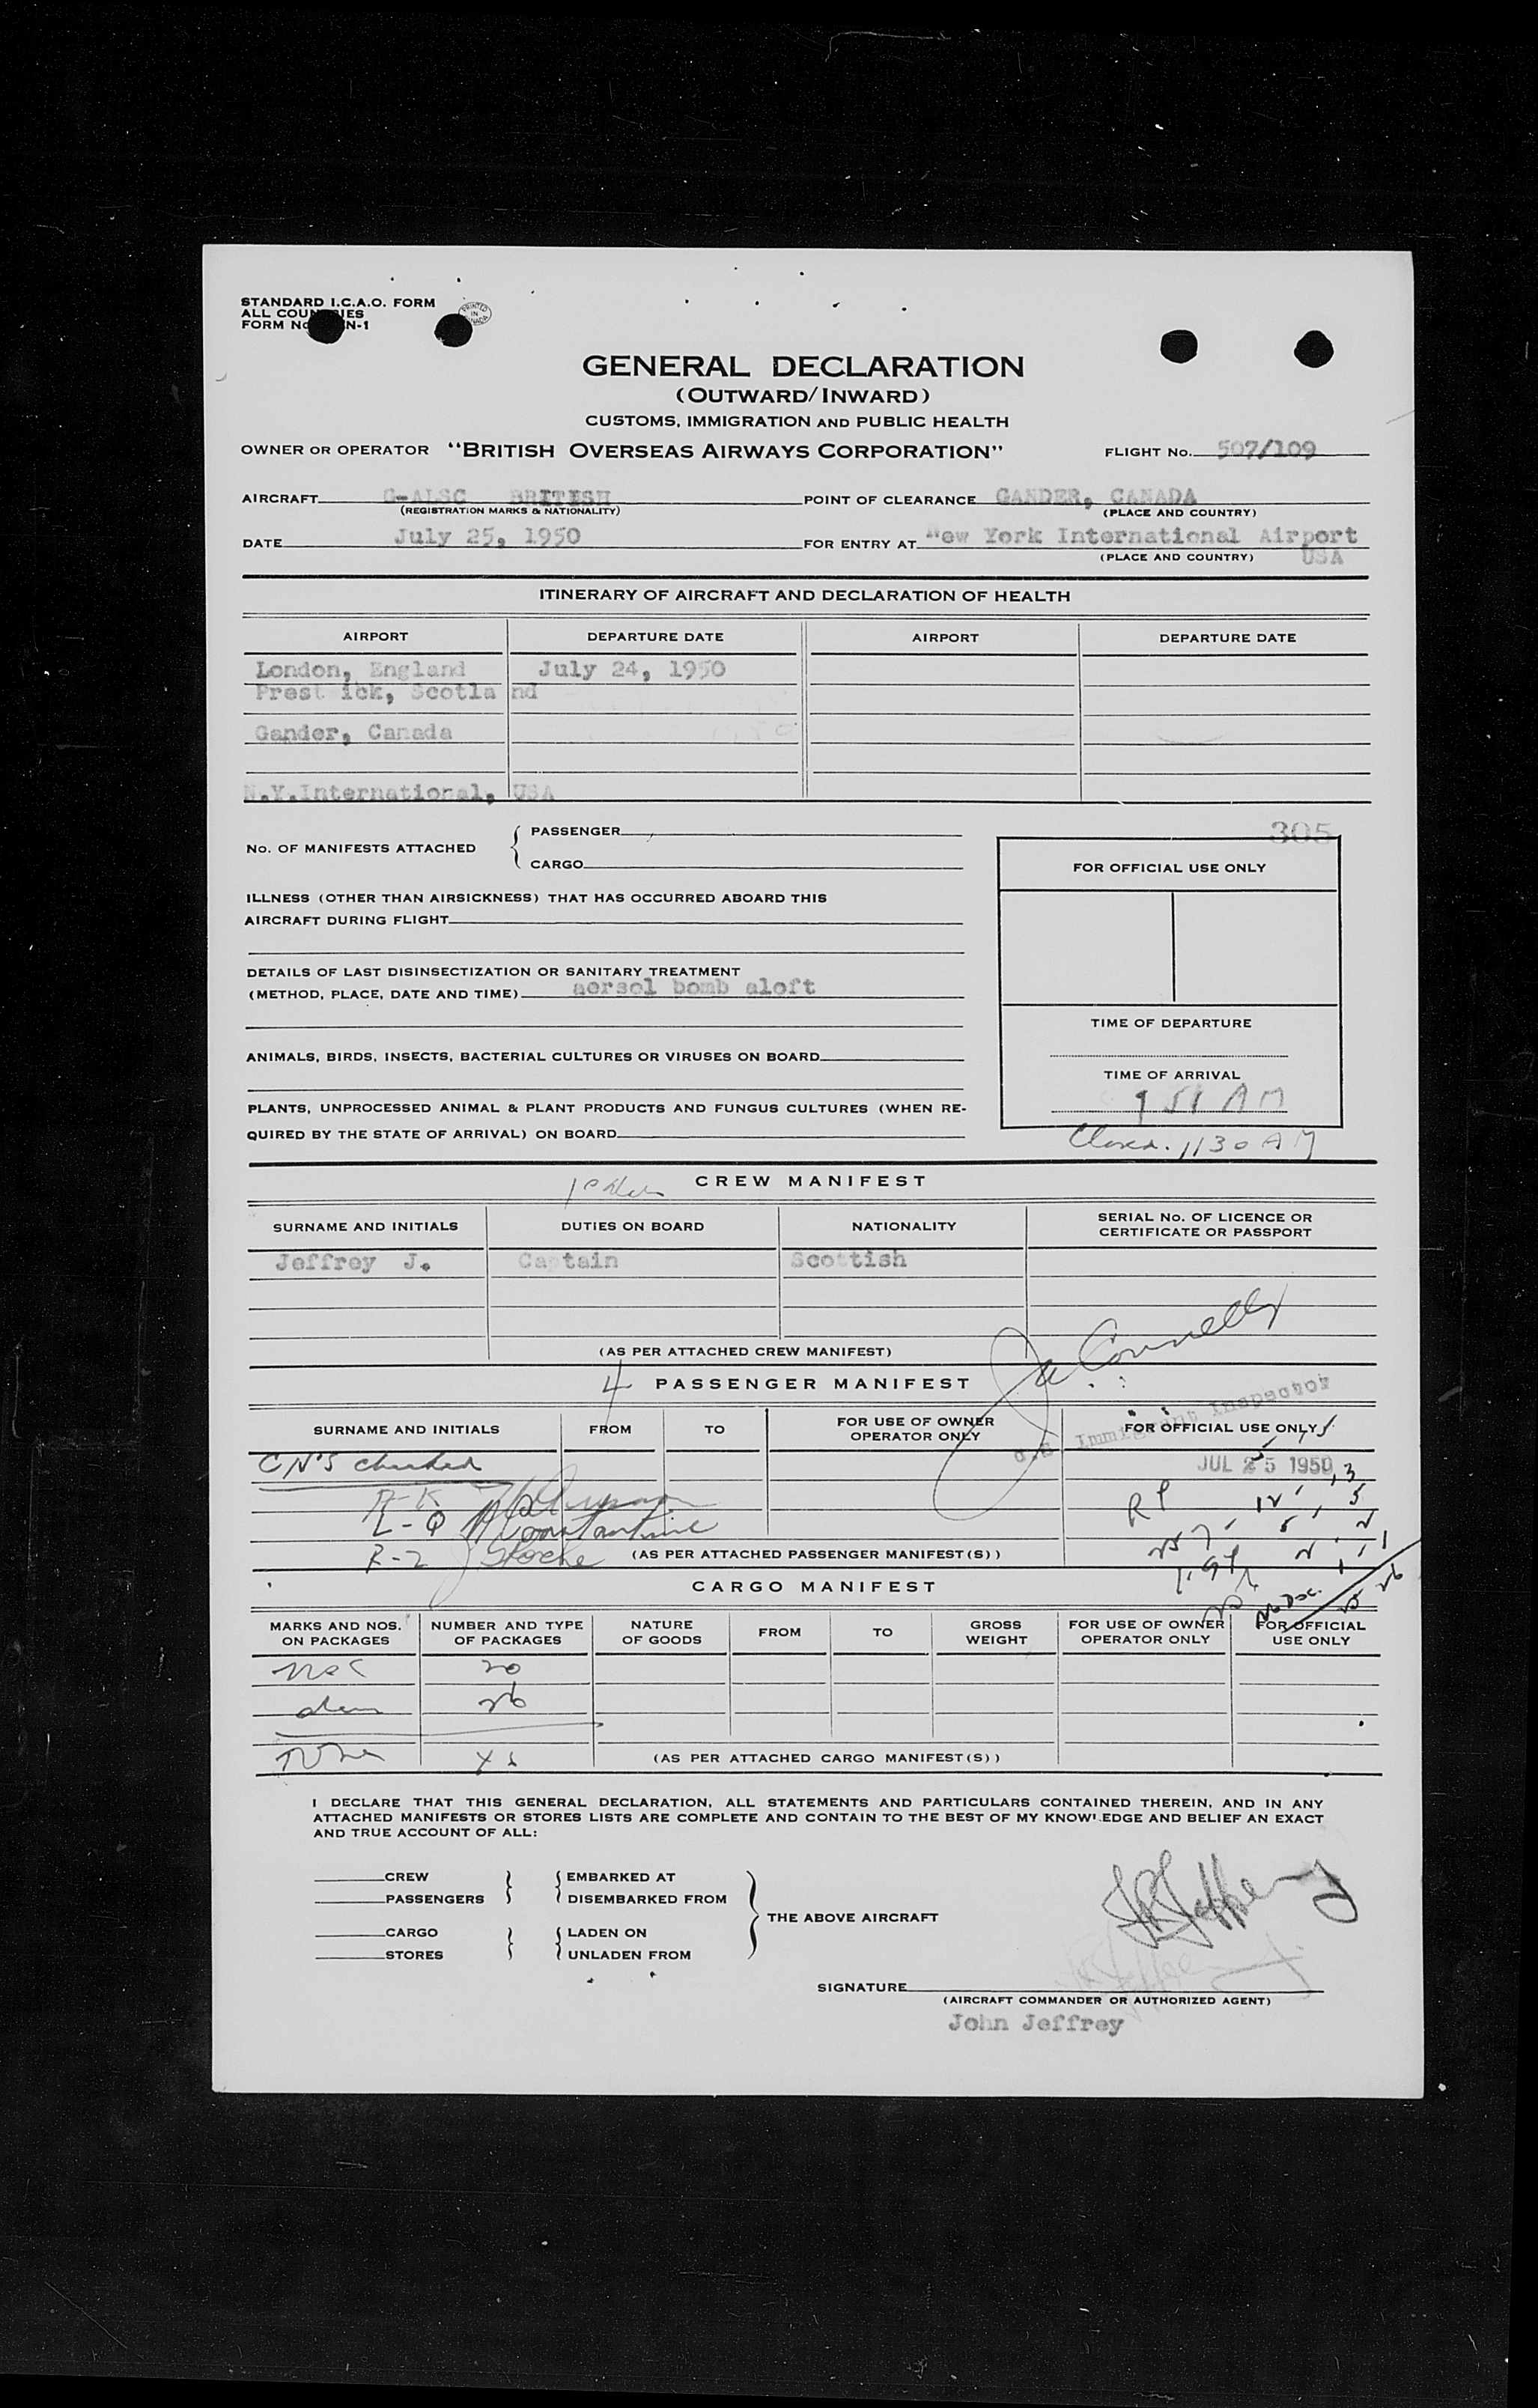 STANDARD I.C.A.O. FORM
ALL COUN IES
FORM No N-1
PRINTED IN CANADA
GENERAL DECLARATION
(OUTWARD/INWARD)
CUSTOMS, IMMIGRATION AND PUBLIC HEALTH
OWNER OR OPERATOR "BRITISH OVERSEAS AIRWAYS CORPORATION" FLIGHT No. 507/109
AIRCRAFT G-ALSC BRITISH POINT OF CLEARANCE GANDER, CANADA
(REGISTRATION MARKS & NATIONALITY) (PLACE AND COUNTRY)
DATE July 25, 1950 FOR ENTRY AT New York International Airport
(PLACE AND COUNTRY) USA
ITINERARY OF AIRCRAFT AND DECLARATION OF HEALTH
AIRPORT DEPARTURE DATE AIRPORT DEPARTURE DATE
London, England July 24, 1950
Prest ick, Scotla nd
Gander, Canada
N.Y.International, USA
305
No. OF MANIFESTS ATTACHED { PASSENGER
CARGO
FOR OFFICIAL USE ONLY
ILLNESS (OTHER THAN AIRSICKNESS) THAT HAS OCCURRED ABOARD THIS
AIRCRAFT DURING FLIGHT
DETAILS OF LAST DISINSECTIZATION OR SANITARY TREATMENT
(METHOD, PLACE, DATE AND TIME) aersol bomb aloft
TIME OF DEPARTURE
ANIMALS, BIRDS, INSECTS, BACTERIAL CULTURES OR VIRUSES ON BOARD
TIME OF ARRIVAL
9 51 AM
PLANTS, UNPROCESSED ANIMAL & PLANT PRODUCTS AND FUNGUS CULTURES (WHEN RE-
QUIRED BY THE STATE OF ARRIVAL) ON BOARD
Closed. 1130 AM
CREW MANIFEST
SURNAME AND INITIALS DUTIES ON BOARD NATIONALITY SERIAL No. OF LICENCE OR
CERTIFICATE OR PASSPORT
Jeffrey J. Ca tain Sco tish
(AS PER ATTACHED CREW MANIFEST)
Connelly
4 PASSENGER MANIFEST
Immigrant Inspector
SURNAME AND INITIALS FROM TO FOR USE OF OWNER
OPERATOR ONLY FOR OFFICIAL USE ONLY
CN'S checked
JUL 25 1950
A-K
L-Q Constantine
R-Z Roche (AS PER ATTACHED PASSENGER MANIFEST(S))
CARGO MANIFEST
No Doc.
MARKS AND NOS.
ON PACKAGES NUMBER AND TYPE
OF PACKAGES NATURE
OF GOODS FROM TO GROSS
WEIGHT FOR USE OF OWNER
OPERATOR ONLY FOR OFFICIAL
USE ONLY
20
26
(AS PER ATTACHED CARGO MANIFEST(S))
I DECLARE THAT THIS GENERAL DECLARATION, ALL STATEMENTS AND PARTICULARS CONTAINED THEREIN, AND IN ANY
ATTACHED MANIFESTS OR STORES LISTS ARE COMPLETE AND CONTAIN TO THE BEST OF MY KNOWLEDGE AND BELIEF AN EXACT
AND TRUE ACCOUNT OF ALL:
CREW } { EMBARKED AT
PASSENGERS DISEMBARKED FROM
THE ABOVE AIRCRAFT
CARGO } { LADEN ON
STORES UNLADEN FROM
SIGNATURE
(AIRCRAFT COMMANDER OR AUTHORIZED AGENT)
John Jeffrey